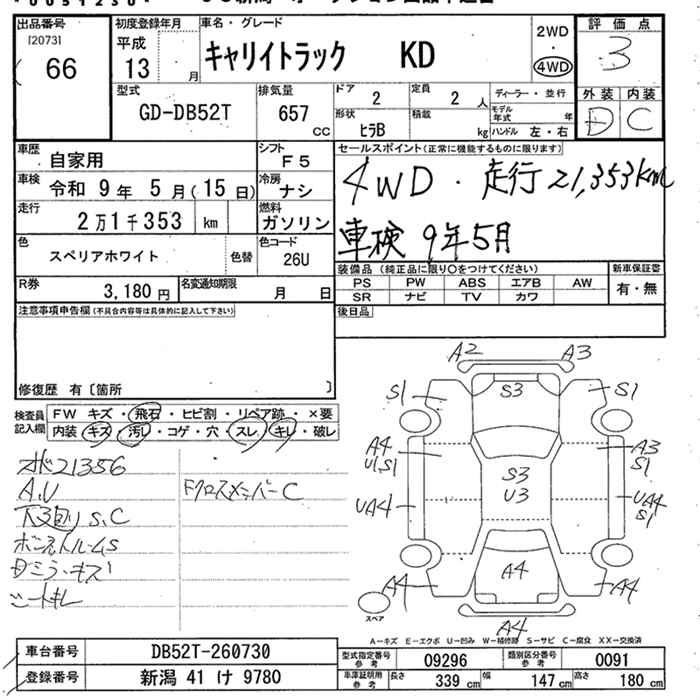 出品番号
[20731
66
初度登録年月
平成
13 月
車名・グレード
キャリイトラック KD
2WD
・
4WD
評価点
3
外装 内装
D C
型式
GD-DB52T
排気量
657 CC
ドア 2
定員 2 人
形状 ヒラB
積載 kg
ディーラー・並行
モデル年式 年
ハンドル 左・右
車歴 自家用
シフト F5
車検 令和 9年 5月(15日)
冷房 ナシ
走行 2万1千353 km
燃料 ガソリン
色 スペリアホワイト 色替
色コード 26U
R券 3,180円
名変通知期限 月 日
セールスポイント(正常に機能するものに限ります)
4WD・走行21,353km
車検 9年5月
装備品(純正品に限り○をつけてください)
PS PW ABS エアB AW
SR ナビ TV カワ
新車保証書
有・無
後日品
注意事項申告欄(不具合内容等は具体的に記入して下さい)
修復歴 有〔箇所 〕
検査員記入欄
FW キズ・飛石・ヒビ割・リペア跡・×要
内装 キズ・汚レ・コゲ・穴・スレ・キレ・破レ
21356
A.U
下回り S.C
ボンネットルームS
キズ
シートキレ
FクロスメンバーC
A2 A3
S1 S3 S1
A4
U1,S1
A3
S1
S3
U3
UA4
UA4
S1
A4 A4 A4
A4
スペア
A-キズ E-エクボ U-凹み W-補修跡 S-サビ C-腐食 XX-交換済
車台番号 DB52T-260730
登録番号 新潟 41 け 9780
型式指定番号 参考 09296
類別区分番号 参考 0091
車庫証明用 参考 長さ 339 cm 幅 147 cm 高さ 180 cm